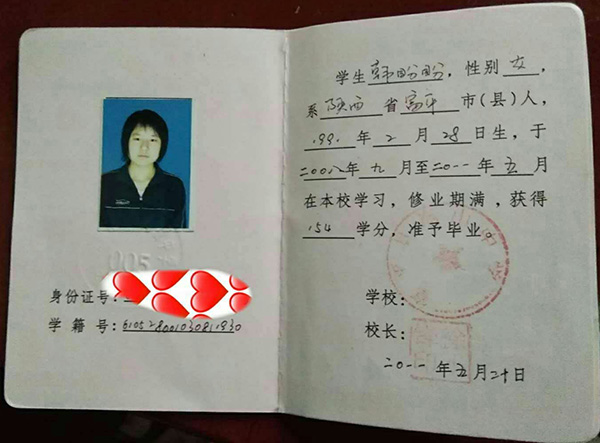 005
身份证号:
学籍号:610528001030811930
学生韩盼盼,性别女,
系陕西省富平市(县)人,
1991年2月28日生,于
二00八年九月至二0一一年五月
在本校学习,修业期满,获得
154学分,准予毕业。
学校:
校长:
二0一一年五月二十日